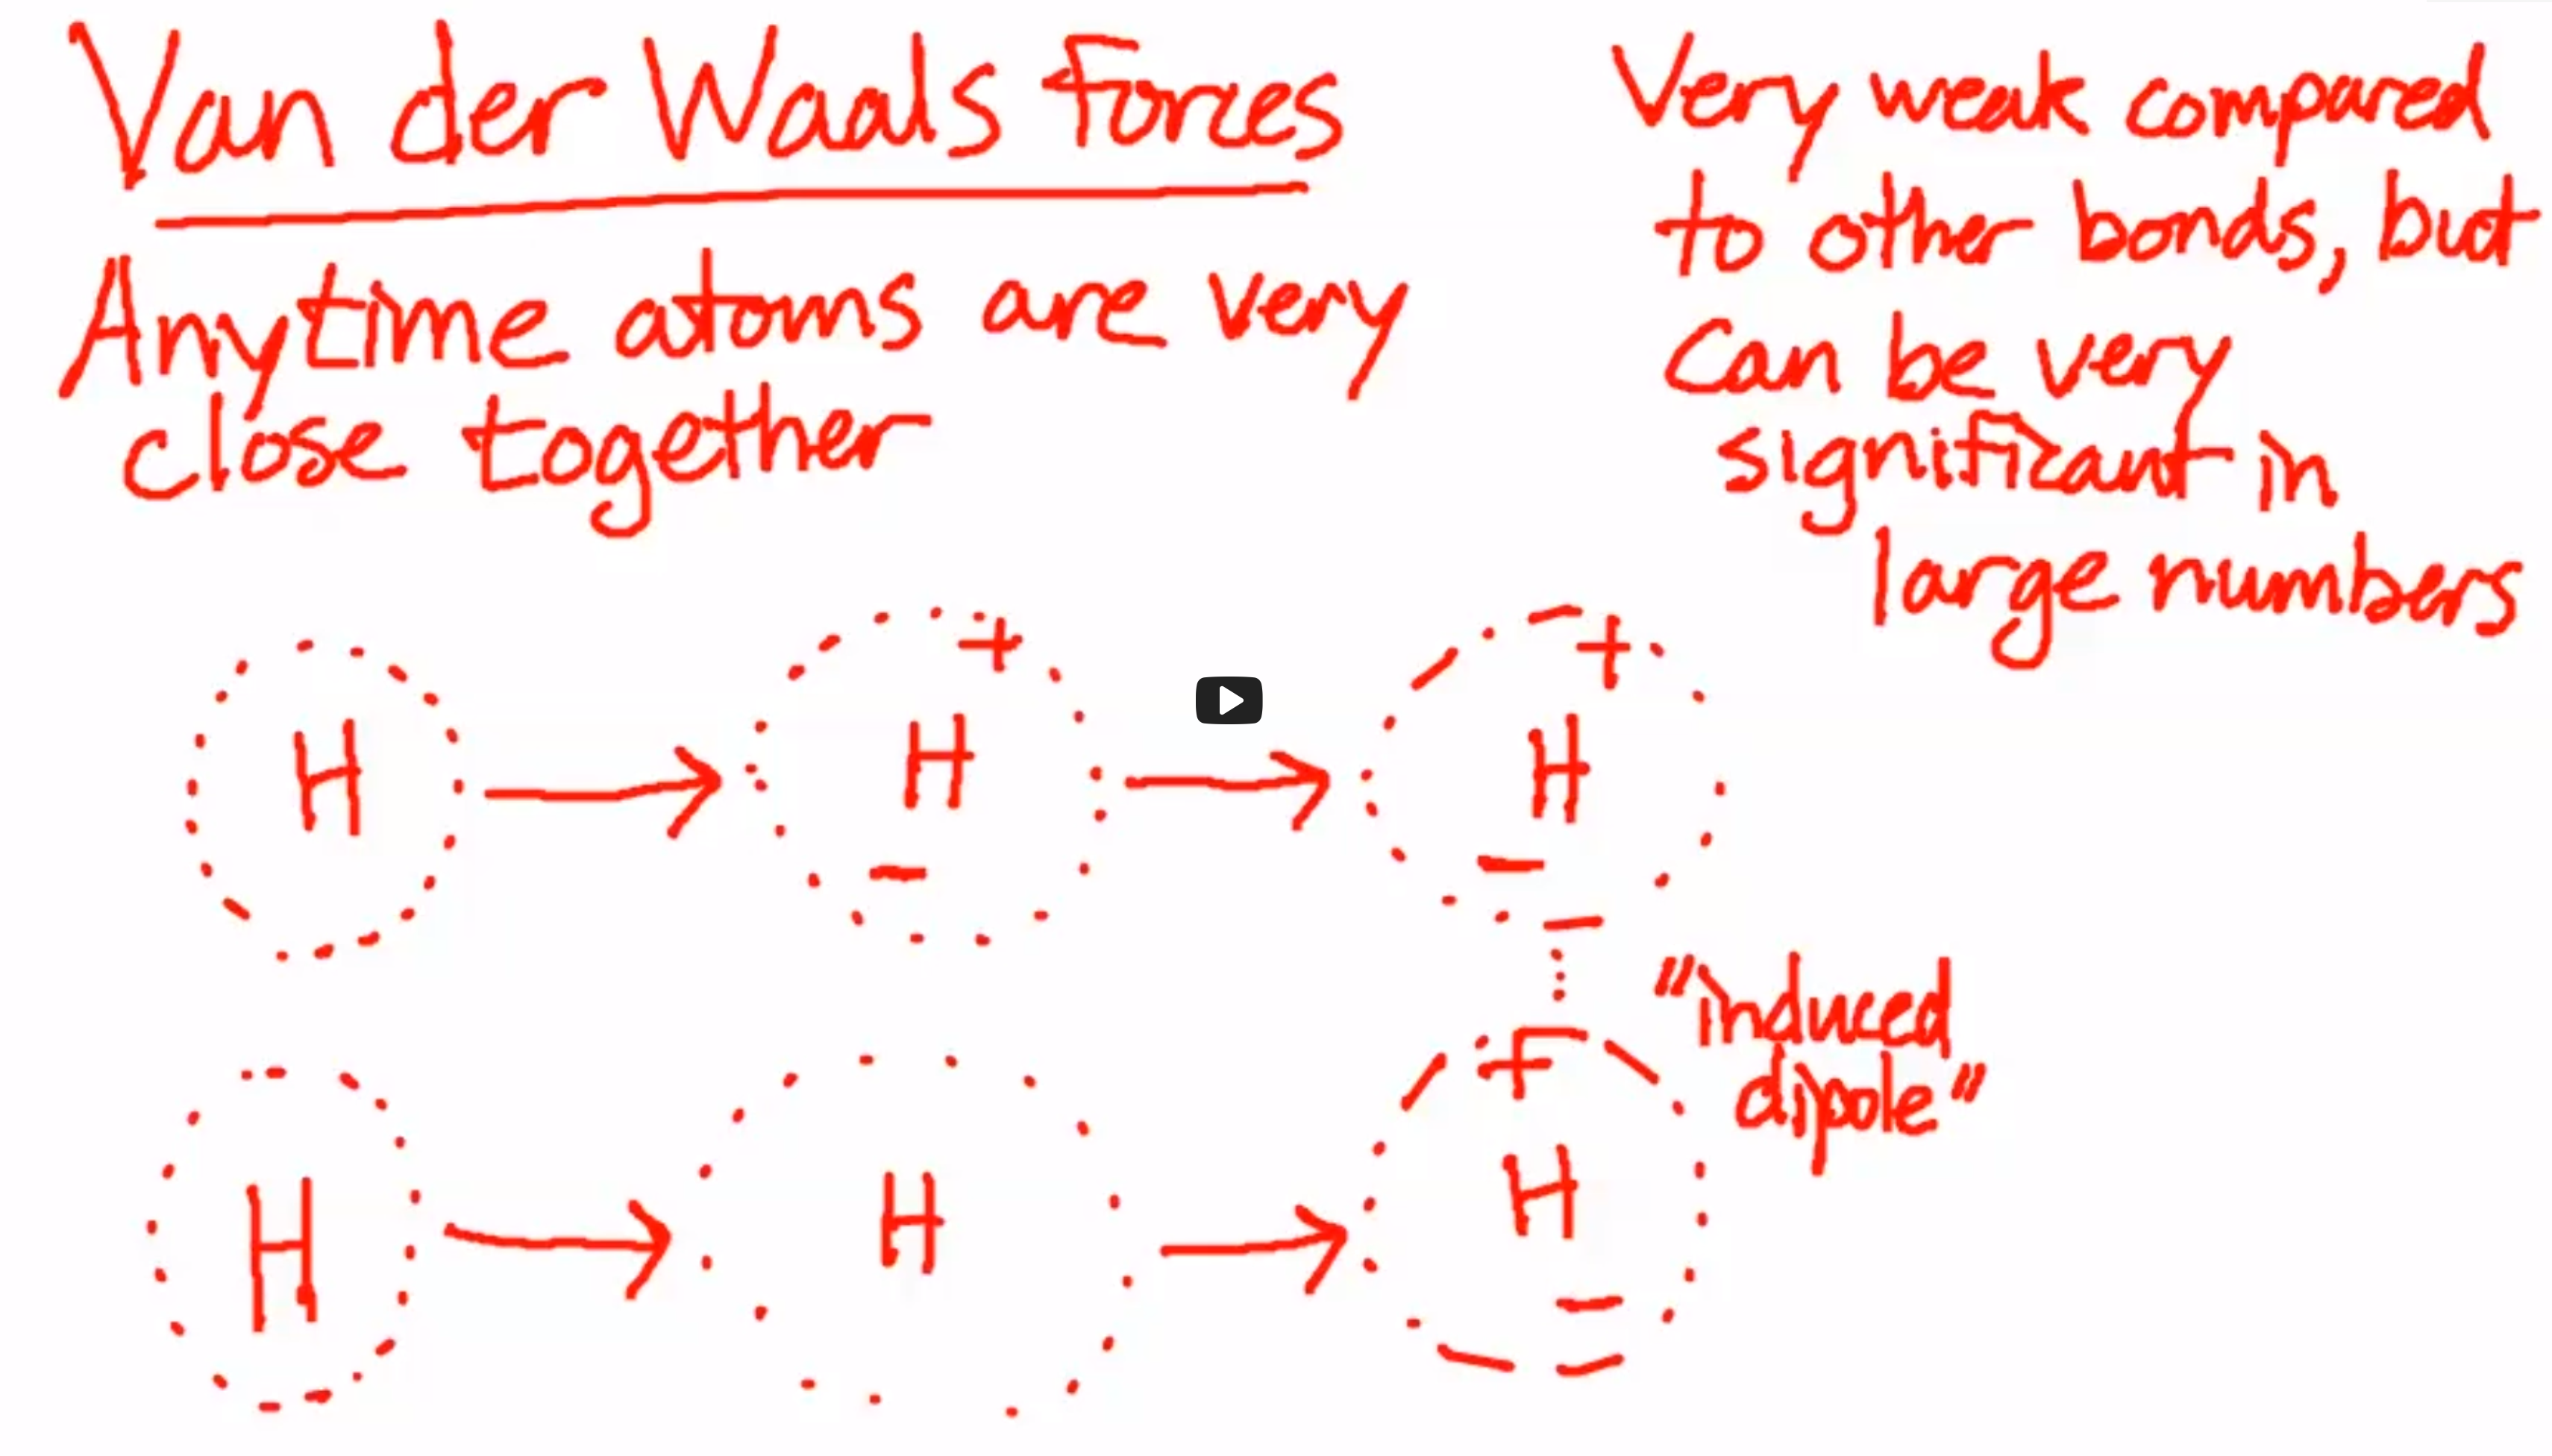 Van der Waals Forces
Anytime atoms are very
close together
Very weak compared
to other bonds, but
can be very
significant in
large numbers
H
H +
-
H +
-
"induced
dipole"
H
H
+
H
-